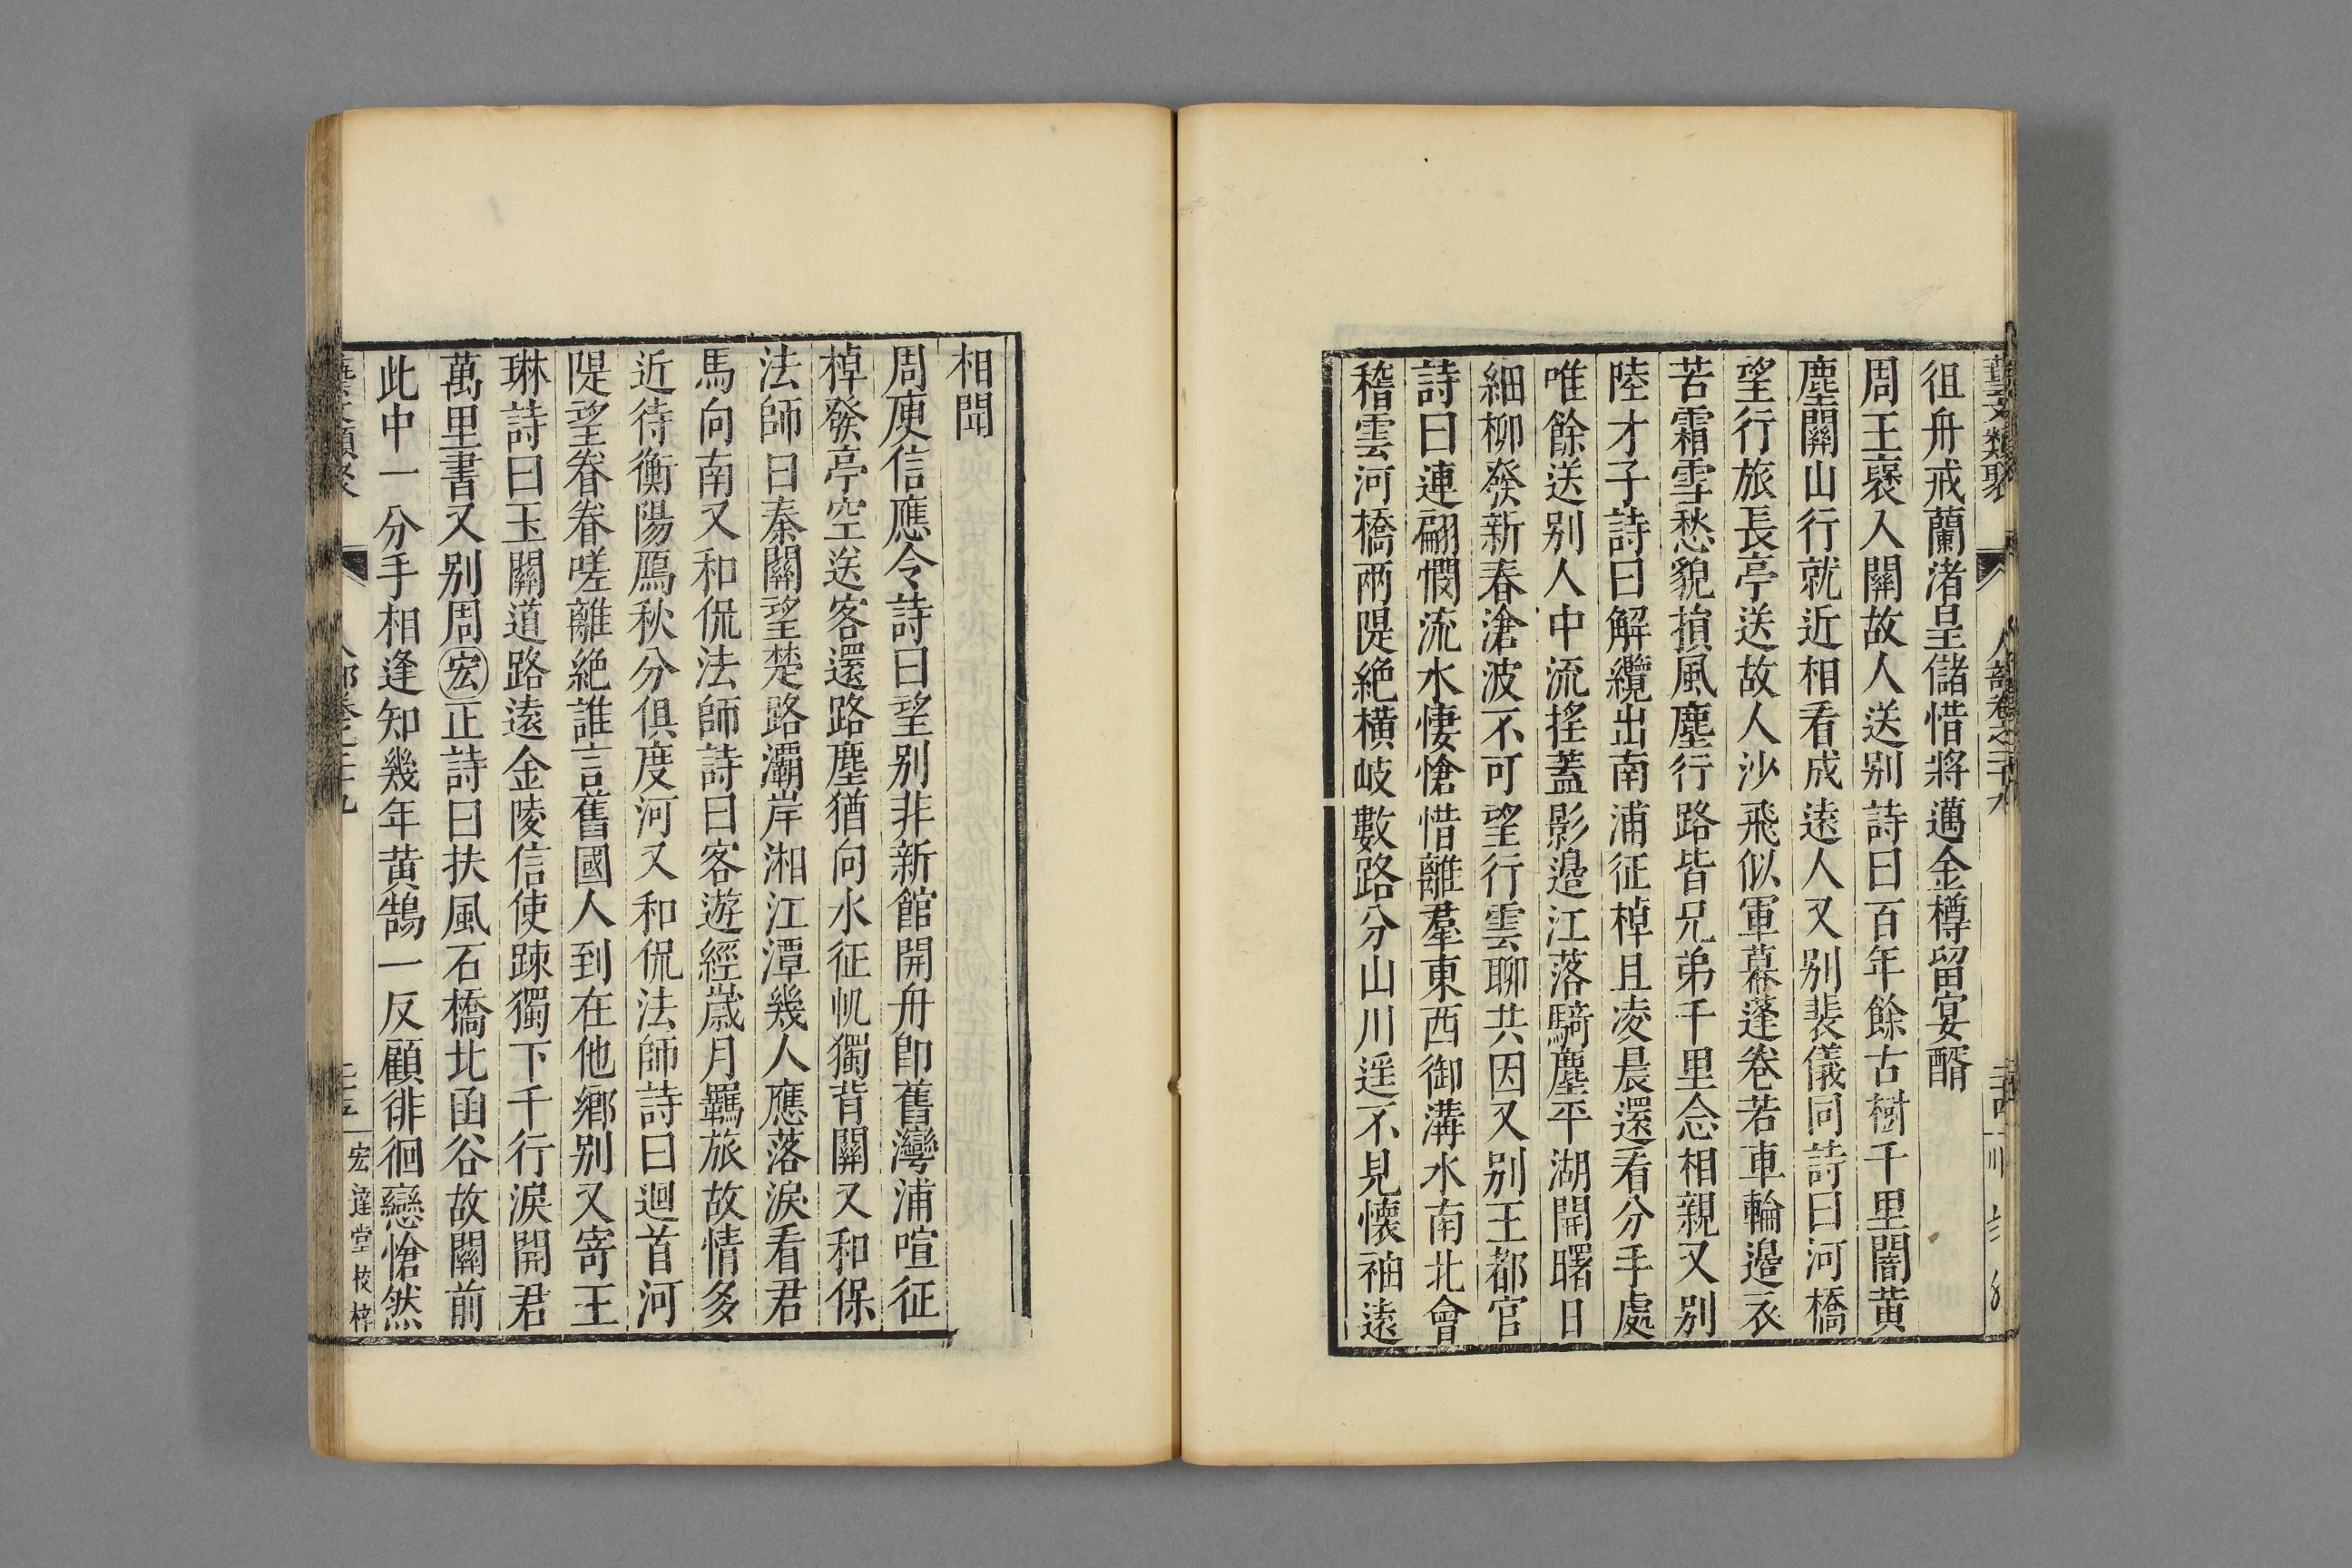 藝文類聚 人部卷之二十九
徂舟戒蘭渚皇儲惜將邁金樽留宴醑
周王襃入關故人送别詩曰百年餘古樹千里闇黄
塵關山行就近相看成遠人又别裴儀同詩曰河橋
望行旅長亭送故人沙飛似軍幕蓬卷若車輪邉衣
苦霜雪愁貌損風塵行路皆兄弟千里念相親又别
陸才子詩曰解纜出南浦征棹且凌晨還看分手處
唯餘送别人中流揺蓋影邉江落騎塵平湖開曙日
細柳發新春滄波不可望行雲聊共因又别王都官
詩曰連翩憫流水悽愴惜離羣東西御溝水南北會
稽雲河橋兩隄絶横岐數路分山川遥不見懐袖遠
相聞
周庾信應令詩曰望别非新館開舟卽舊灣浦喧征
棹發亭空送客還路塵猶向水征帆獨背關又和保
法師曰秦關望楚路灞岸湘江潭幾人應落淚看君
馬向南又和侃法師詩曰客遊經歳月羈旅故情多
近待衡陽鴈秋分俱度河又和侃法師詩曰迴首河
隄望眷眷嗟離絶誰言舊國人到在他鄉别又寄王
琳詩曰玉關道路遠金陵信使踈獨下千行淚開君
萬里書又别周宏正詩曰扶風石橋北函谷故關前
此中一分手相逢知幾年黄鵠一反顧徘徊戀愴然
宏達堂校梓